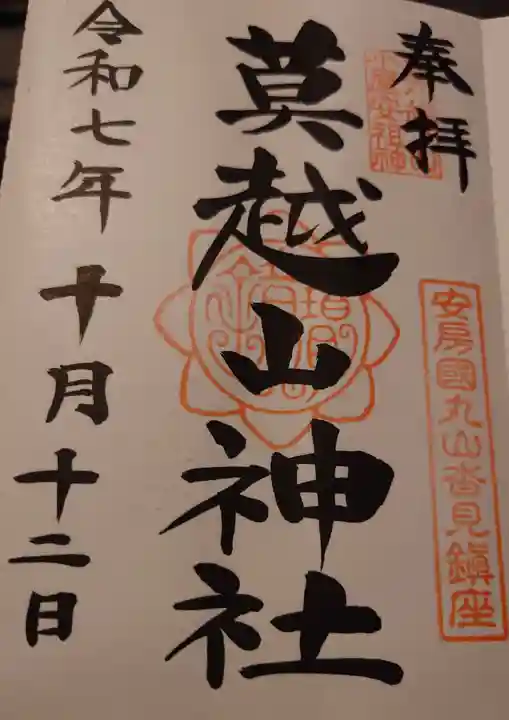 奉拝
安房國丸山沓見鎮座
莫越山神社
令和七年十月十二日